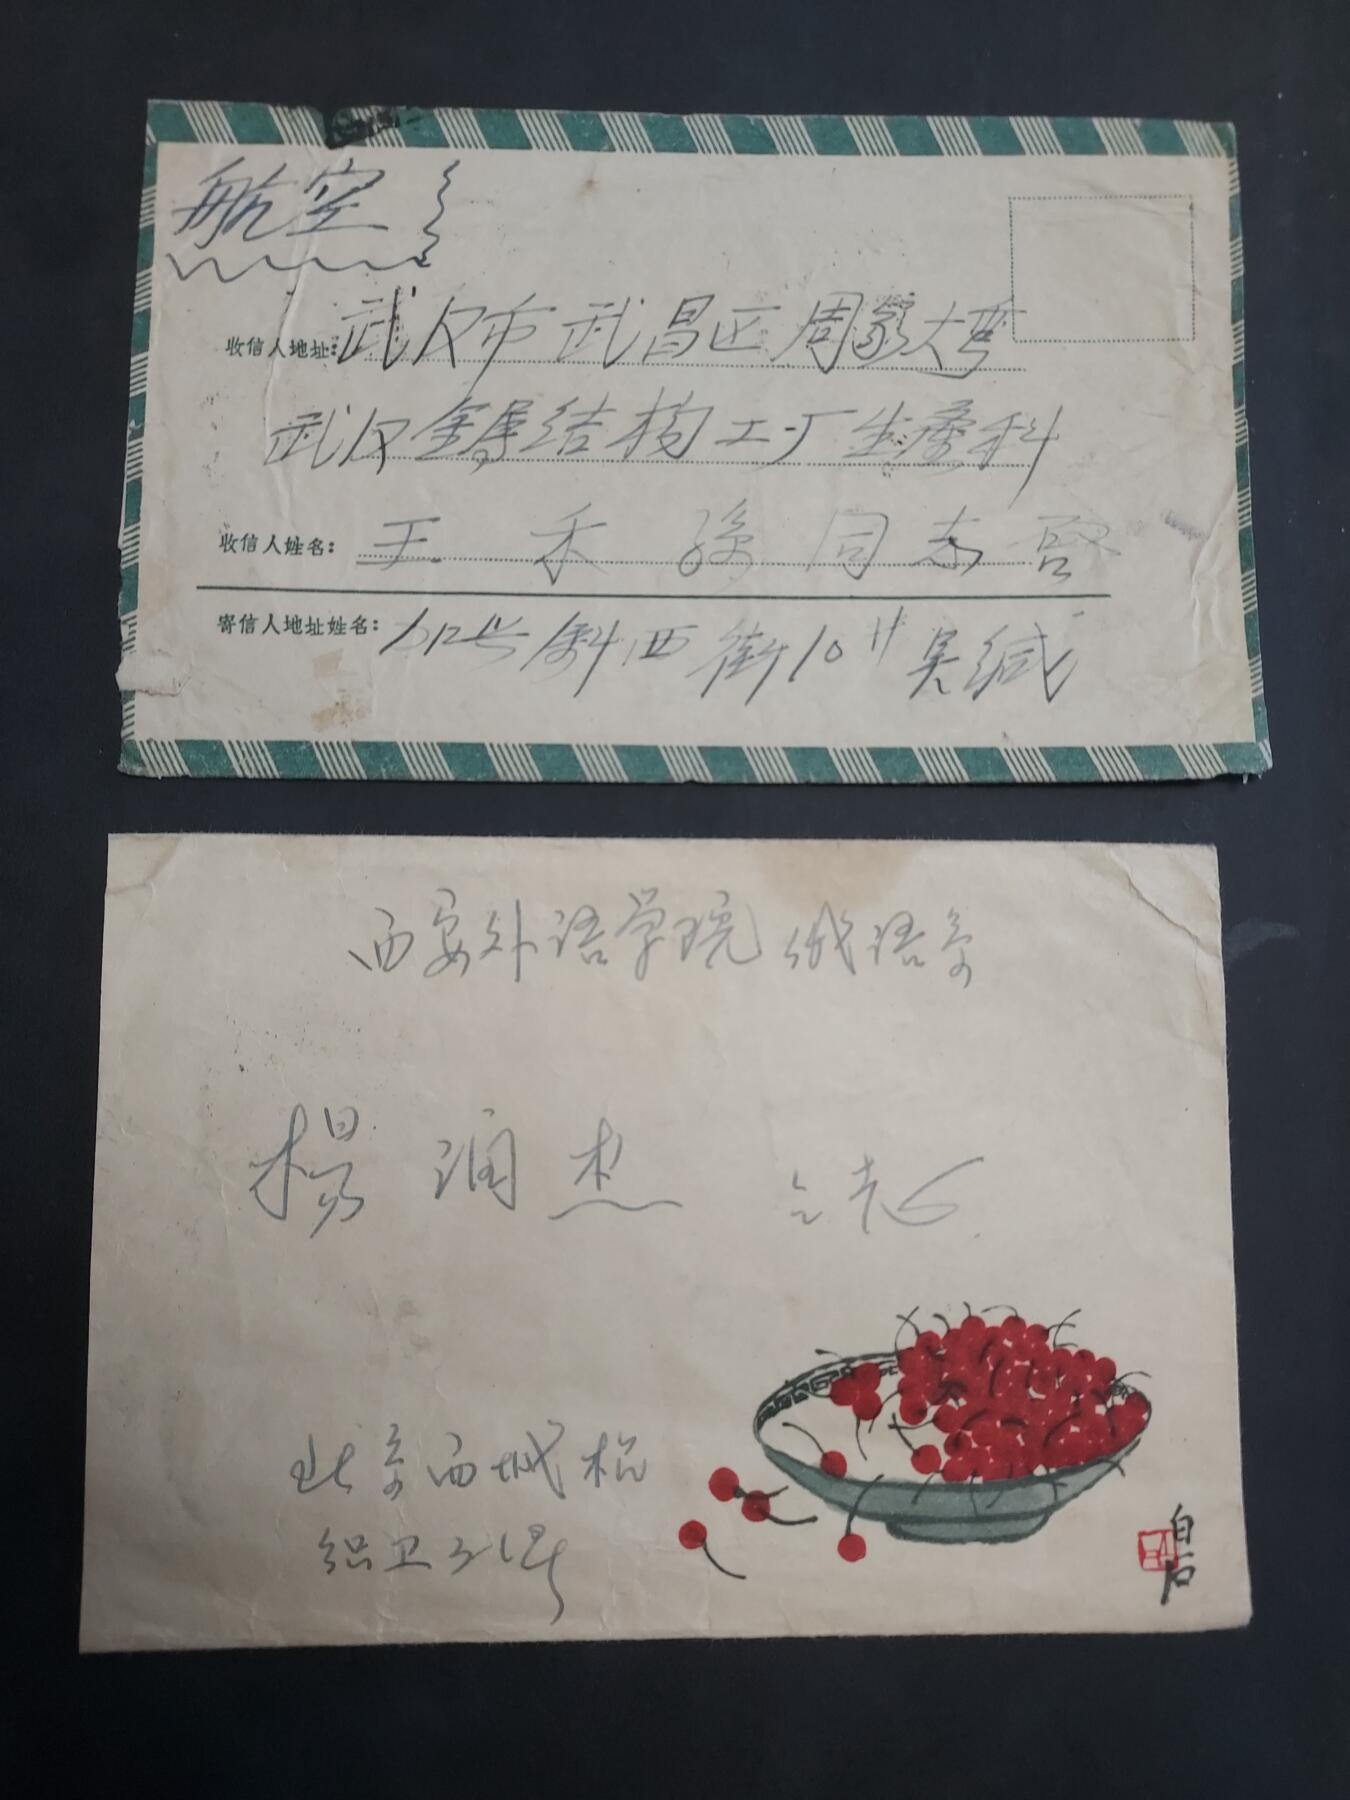 航空
收信人地址: 武汉市武昌区周家大湾
武汉金属结构工厂生产科
收信人姓名: 王禾 同志启
寄信人地址姓名: 斜西街10# 吴缄
西安外语学院俄语系
杨润杰 同志
北京西城
白石